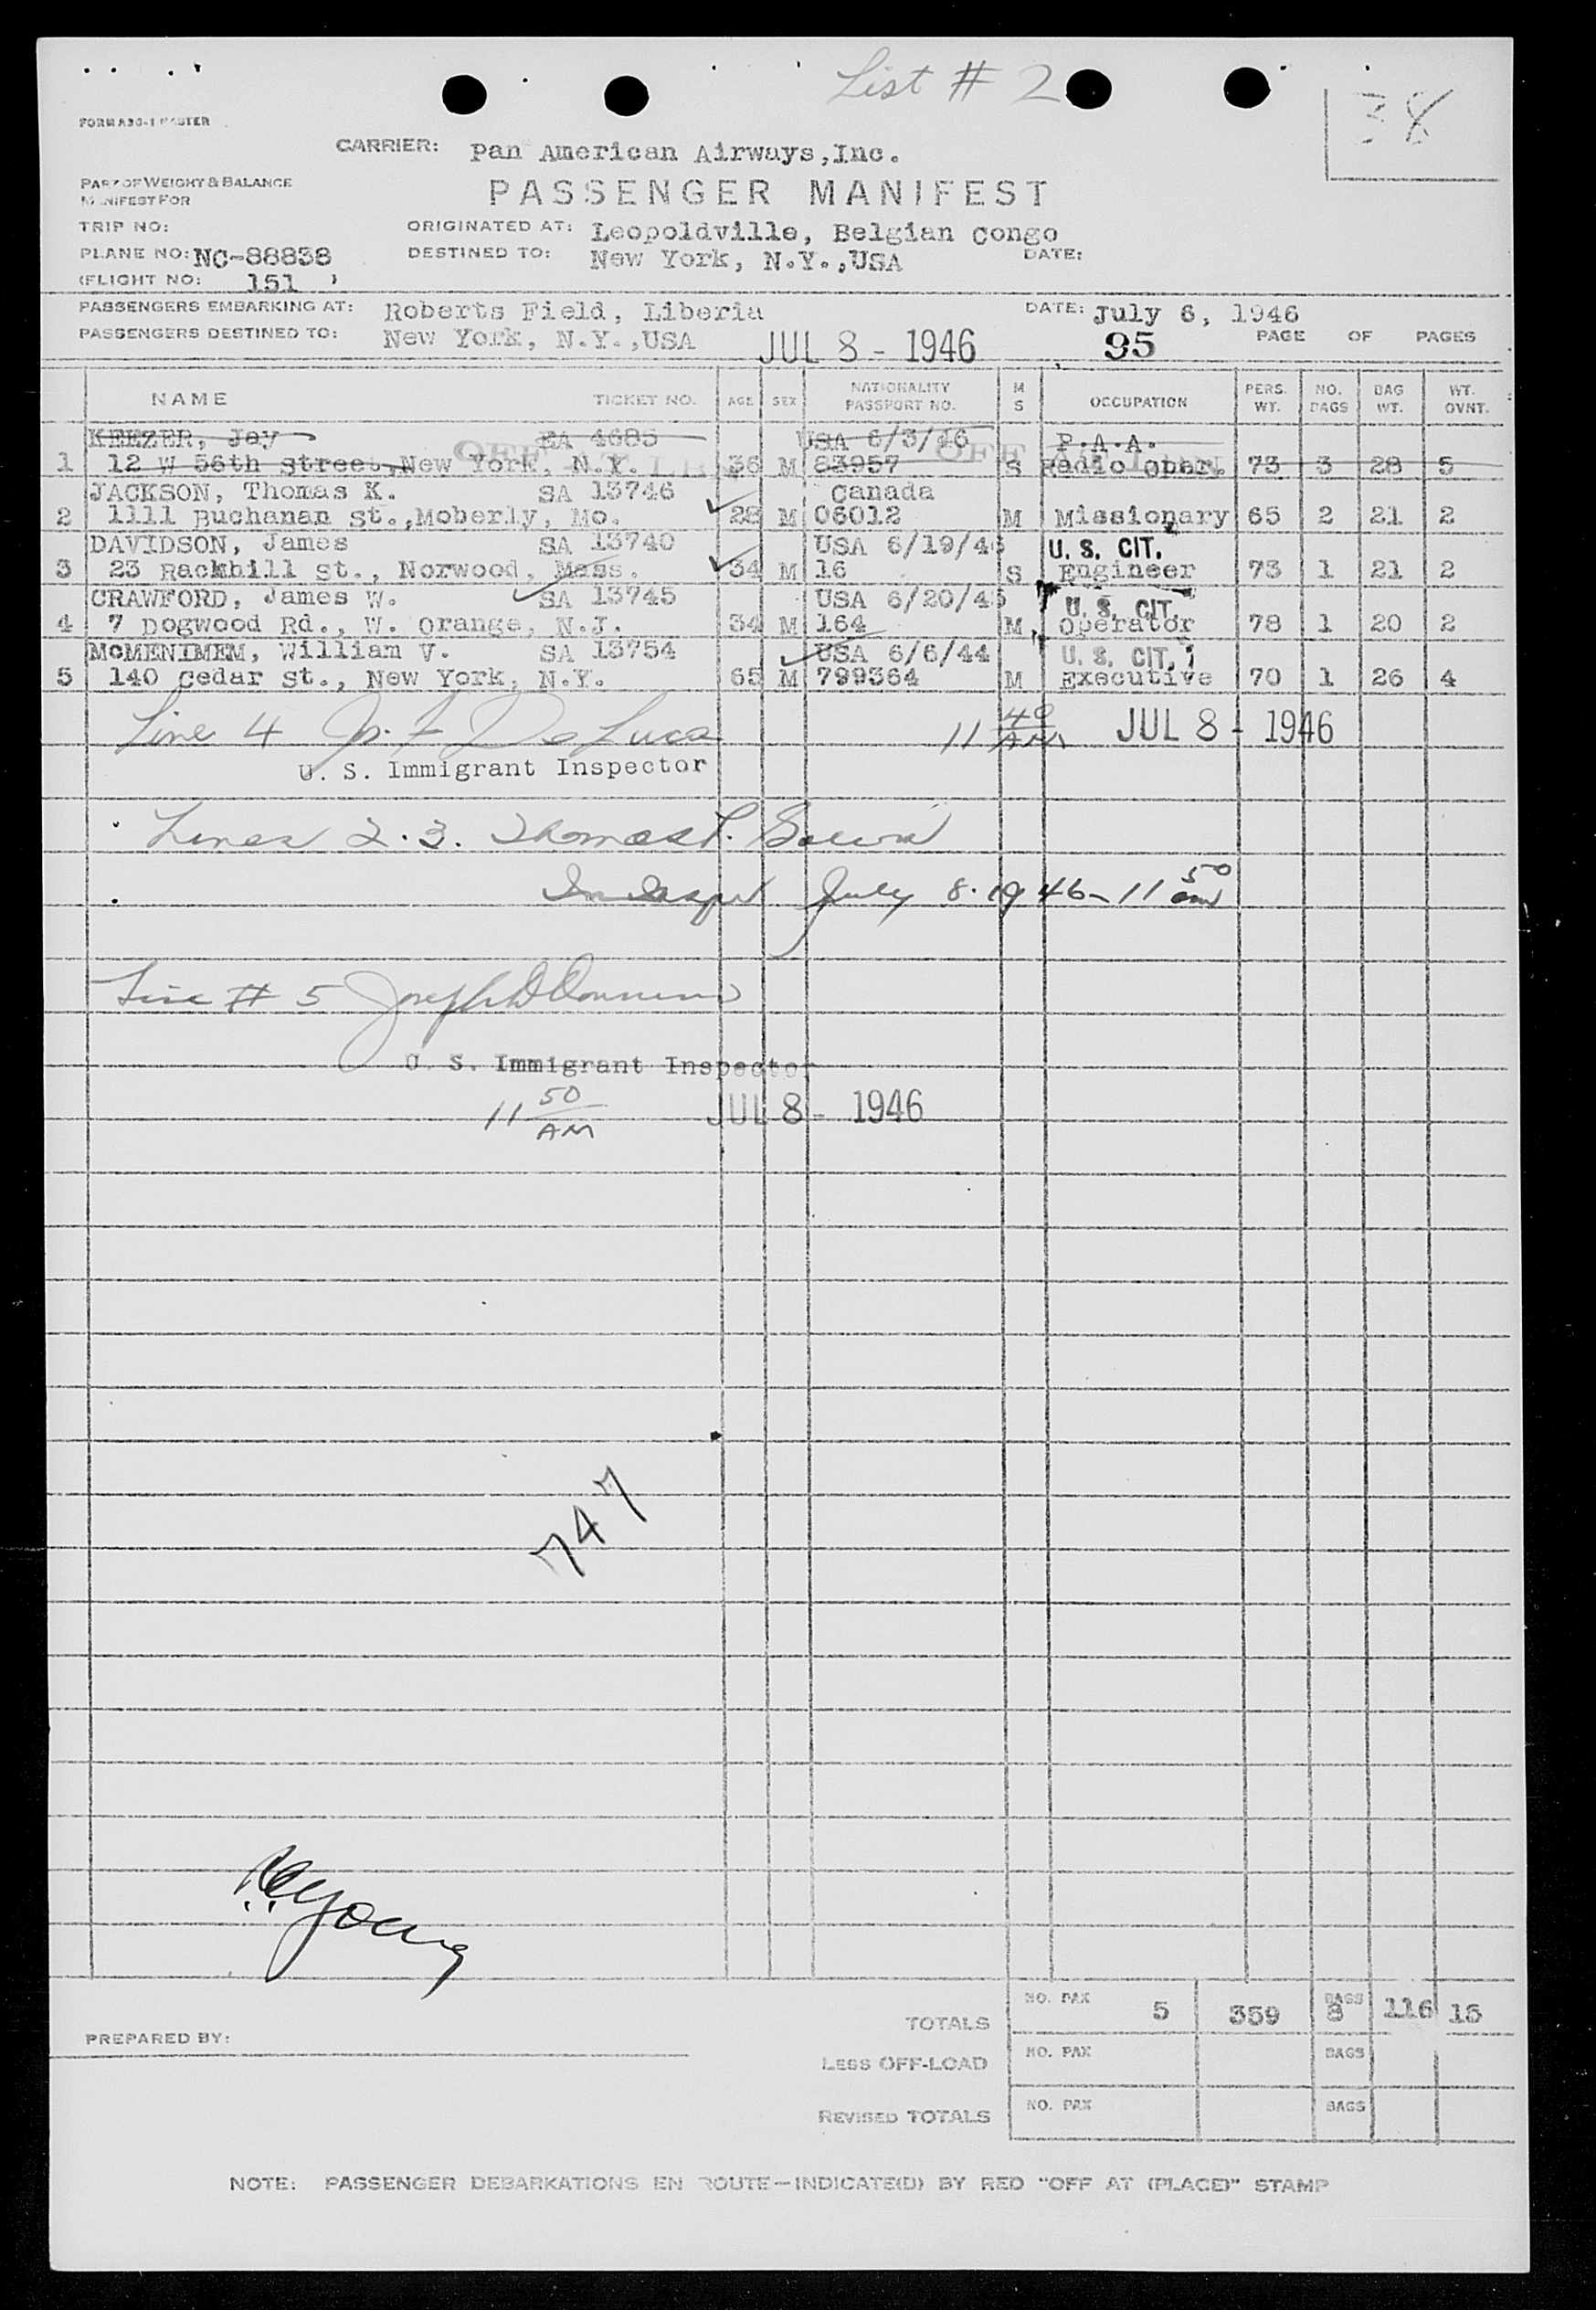 List # 2
38
FORM A30-1 MASTER
CARRIER: Pan American Airways,Inc.
PART OF WEIGHT & BALANCE
MANIFEST FOR
PASSENGER MANIFEST
TRIP NO:
ORIGINATED AT: Leopoldville, Belgian Congo
PLANE NO: NC-88838
DESTINED TO: New York, N.Y.,USA
DATE:
(FLIGHT NO: 151 )
PASSENGERS EMBARKING AT: Roberts Field, Liberia
DATE: July 6, 1946
PASSENGERS DESTINED TO: New York, N.Y.,USA
JUL 8 - 1946
95
PAGE OF PAGES
NAME TICKET NO. AGE SEX NATIONALITY PASSPORT NO. M S OCCUPATION PERS. WT. NO. BAGS BAG WT. WT. OVNT.
KEEZER, Jay EA 4685 USA 6/3/46 P.A.A.
1 12 W 56th Street,New York, N.Y. 36 M 83957 S Radio Oper. 73 3 28 5
JACKSON, Thomas K. SA 13746 Canada
2 1111 Buchanan St.,Moberly, Mo. 28 M 06012 M Missionary 65 2 21 2
DAVIDSON, James SA 13740 USA 6/19/45 U. S. CIT.
3 23 Rackhill St., Norwood, Mass. 34 M 16 S Engineer 73 1 21 2
CRAWFORD, James W. SA 13745 USA 6/20/45 U. S. CIT.
4 7 Dogwood Rd., W. Orange, N.J. 34 M 164 M Operator 78 1 20 2
McMENIMEM, William V. SA 13754 USA 6/6/44 U. S. CIT.
5 140 Cedar St., New York, N.Y. 65 M 799364 M Executive 70 1 26 4
Line 4 De Luca 11 40 AM JUL 8 - 1946
U. S. Immigrant Inspector
Lines 2.3. Thomas
July 8. 1946 - 11 50 am
Line # 5 Joseph
U. S. Immigrant Inspector
11 50 AM JUL 8 - 1946
747
Young
TOTALS NO. PAX 5 359 BAGS 8 116 15
PREPARED BY:
LESS OFF-LOAD NO. PAX BAGS
REVISED TOTALS NO. PAX BAGS
NOTE: PASSENGER DEBARKATIONS EN ROUTE—INDICATE(D) BY RED "OFF AT (PLACE)" STAMP